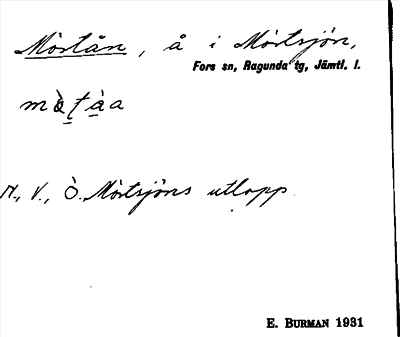 Mörtån, å i Mörtsjön,
Fors sn, Ragunda tg, Jämtl. l.
N., V., Ö. Mörtsjöns utlopp.
E. BURMAN 1931